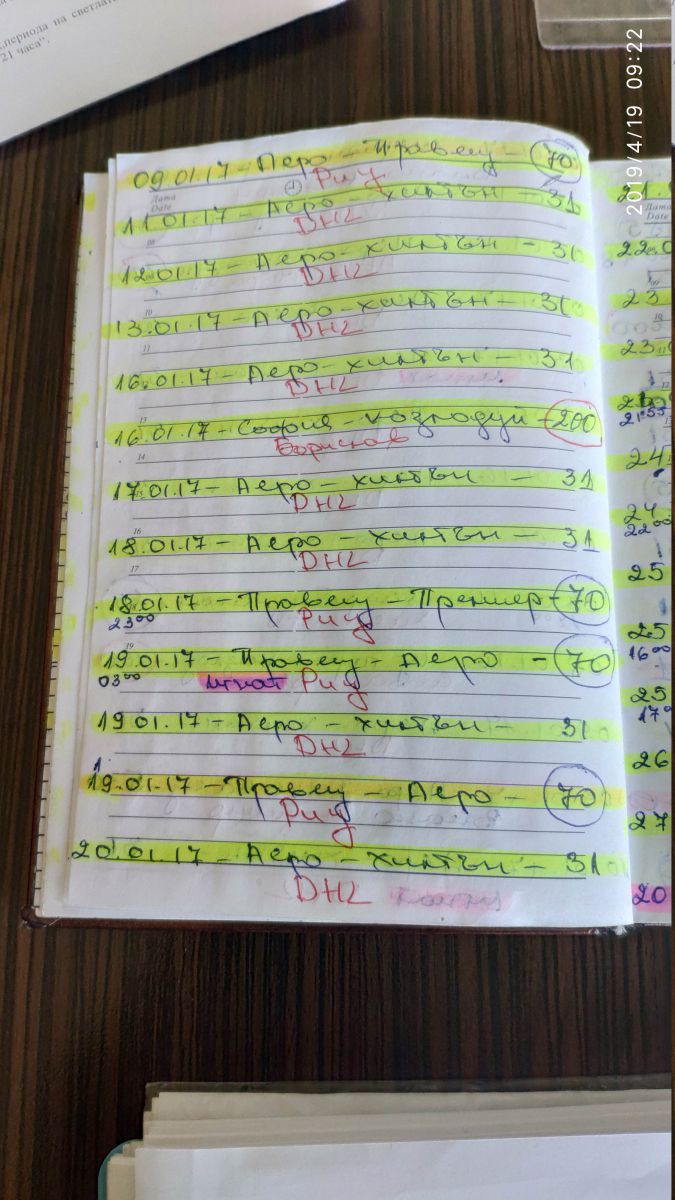 периода на светлат
21 часа".
2019/4/19 09:22
09.01.17 - Аеро - Правец - 70
Дата
Date
Риц
11.01.17 - Аеро - хилтън - 31
DHL
12.01.17 - Аеро - хилтън - 31
DHL
10
13.01.17 - Аеро - хилтън - 31
11
DHL
16.01.17 - Аеро - хилтън - 31
DHL
13
16.01.17 - София - Козлодуй - 200
14
Борислав
17.01.17 - Аеро - хилтън - 31
DHL
16
18.01.17 - Аеро - хилтън - 31
17
DHL
18.01.17 - Правец - Премиер - 70
23 00
Риц
19
19.01.17 - Правец - Аеро - 70
03 00
Риц
19.01.17 - Аеро - хилтън - 31
DHL
19.01.17 - Правец - Аеро - 70
Риц
20.01.17 - Аеро - хилтън - 31
DHL
21.
Дата
Date
22.0
23
23.
21 55
24.
24
22 00
25
25
16 00
25
17 0
26
27
20